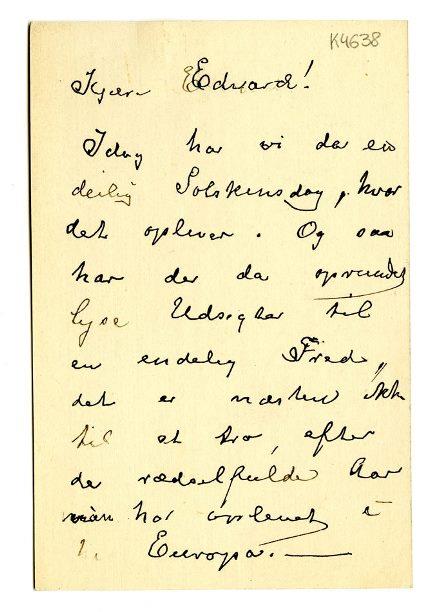 K4638
Kjære Eduard!
Idag har vi da en
deilig Solskinsdag, hvor
det oplever. Og saa
har der da oprundet
lyse Udsigter til
en endelig Fred,
det er næsten ikke
til at tro, efter
de rædselfulde Aar
man har oplevet i
Europa.—